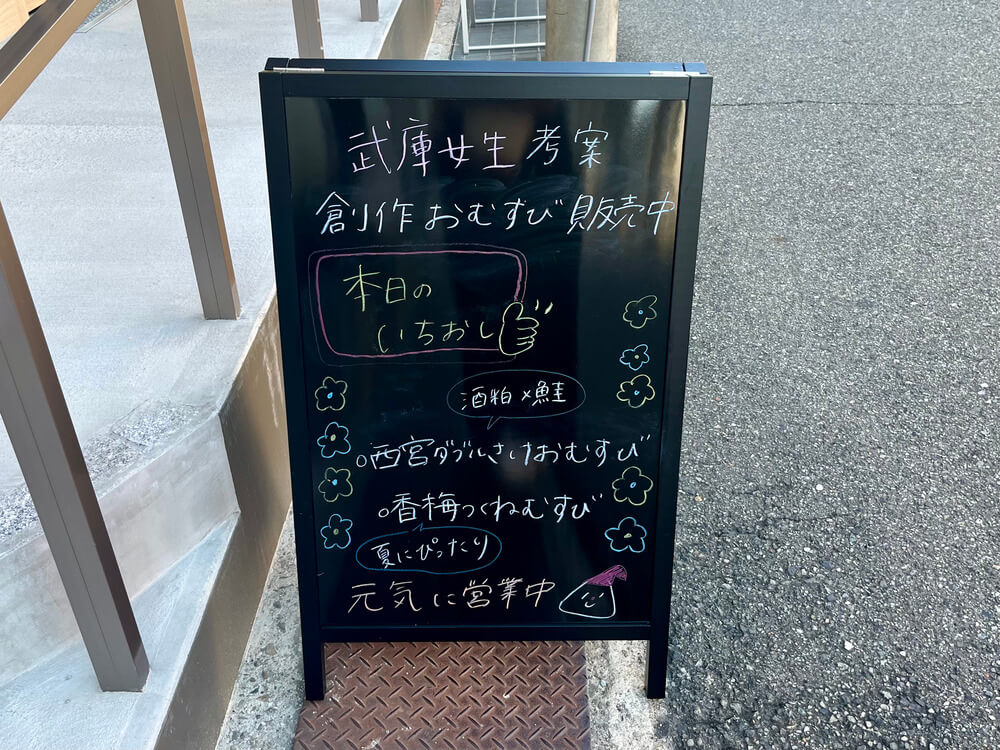 武庫女生考案
創作おむすび販売中
本日の
いちおし
酒粕×鮭
○西宮ダブルさけおむすび
○香梅つくねむすび
夏にぴったり
元気に営業中